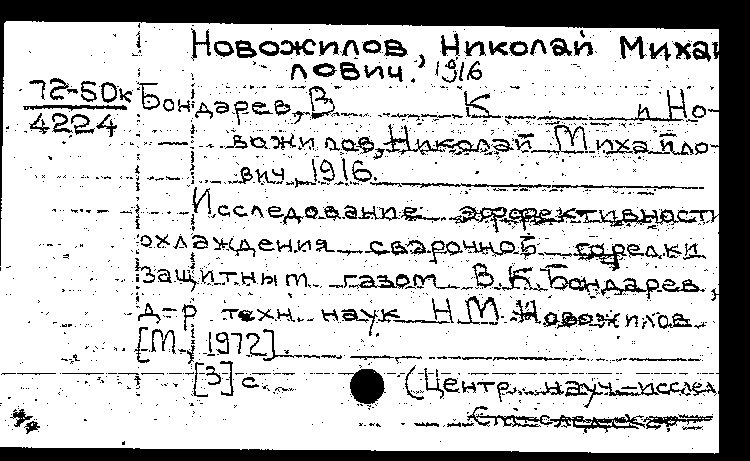 Новожилов, Николай Михай
лович. 1916
72-50к
4224
Бондарев, В К и Но-
вожилов, Николай Михайло-
вич, 1916.
Исследование эффективности
охлаждения сварочной горелки
защитным газом В.К. Бондарев,
д-р техн. наук Н.М. Новожилов.
[М., 1972]
[3] с. (Центр. науч.-исслед